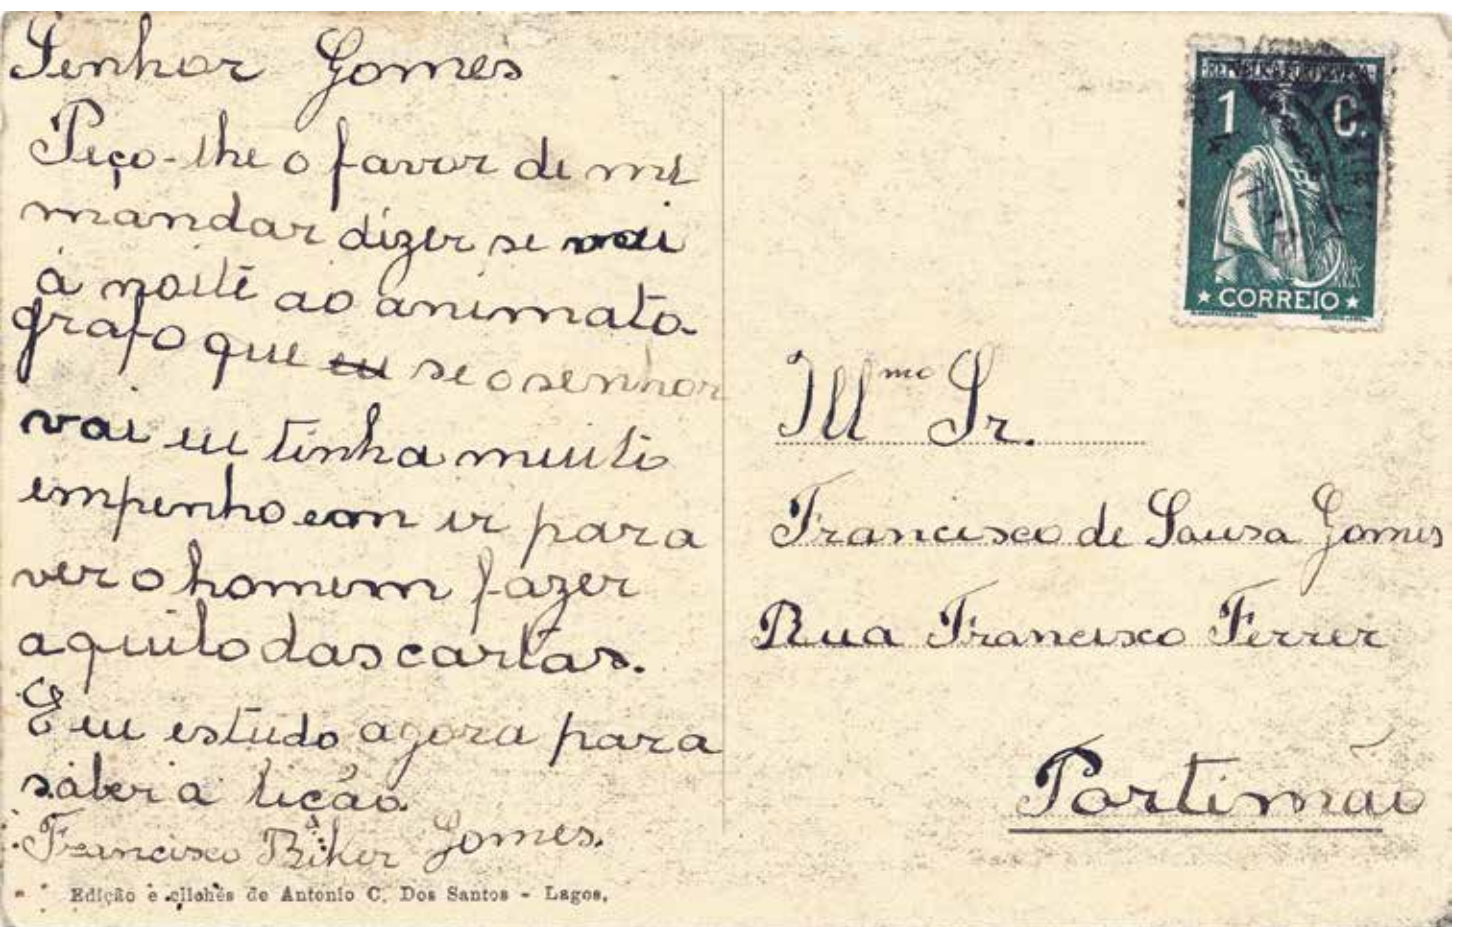 Senhor Gomes
Peço-lhe o favor de me
mandar dizer se vai
á noite ao animato-
grafo que eu se o senhor
vai eu tinha muito
empenho em ir para
ver o homem fazer
aquilo das cartas.
E eu estudo agora para
saber a lição
Francisco Biker Gomes.
Edição e clichés de Antonio C. Dos Santos - Lagos.
REPUBLICA PORTUGUESA
1 C.
★ CORREIO ★
Illmo Sr.
Francisco de Sousa Gomes
Rua Francisco Ferrer
Portimão